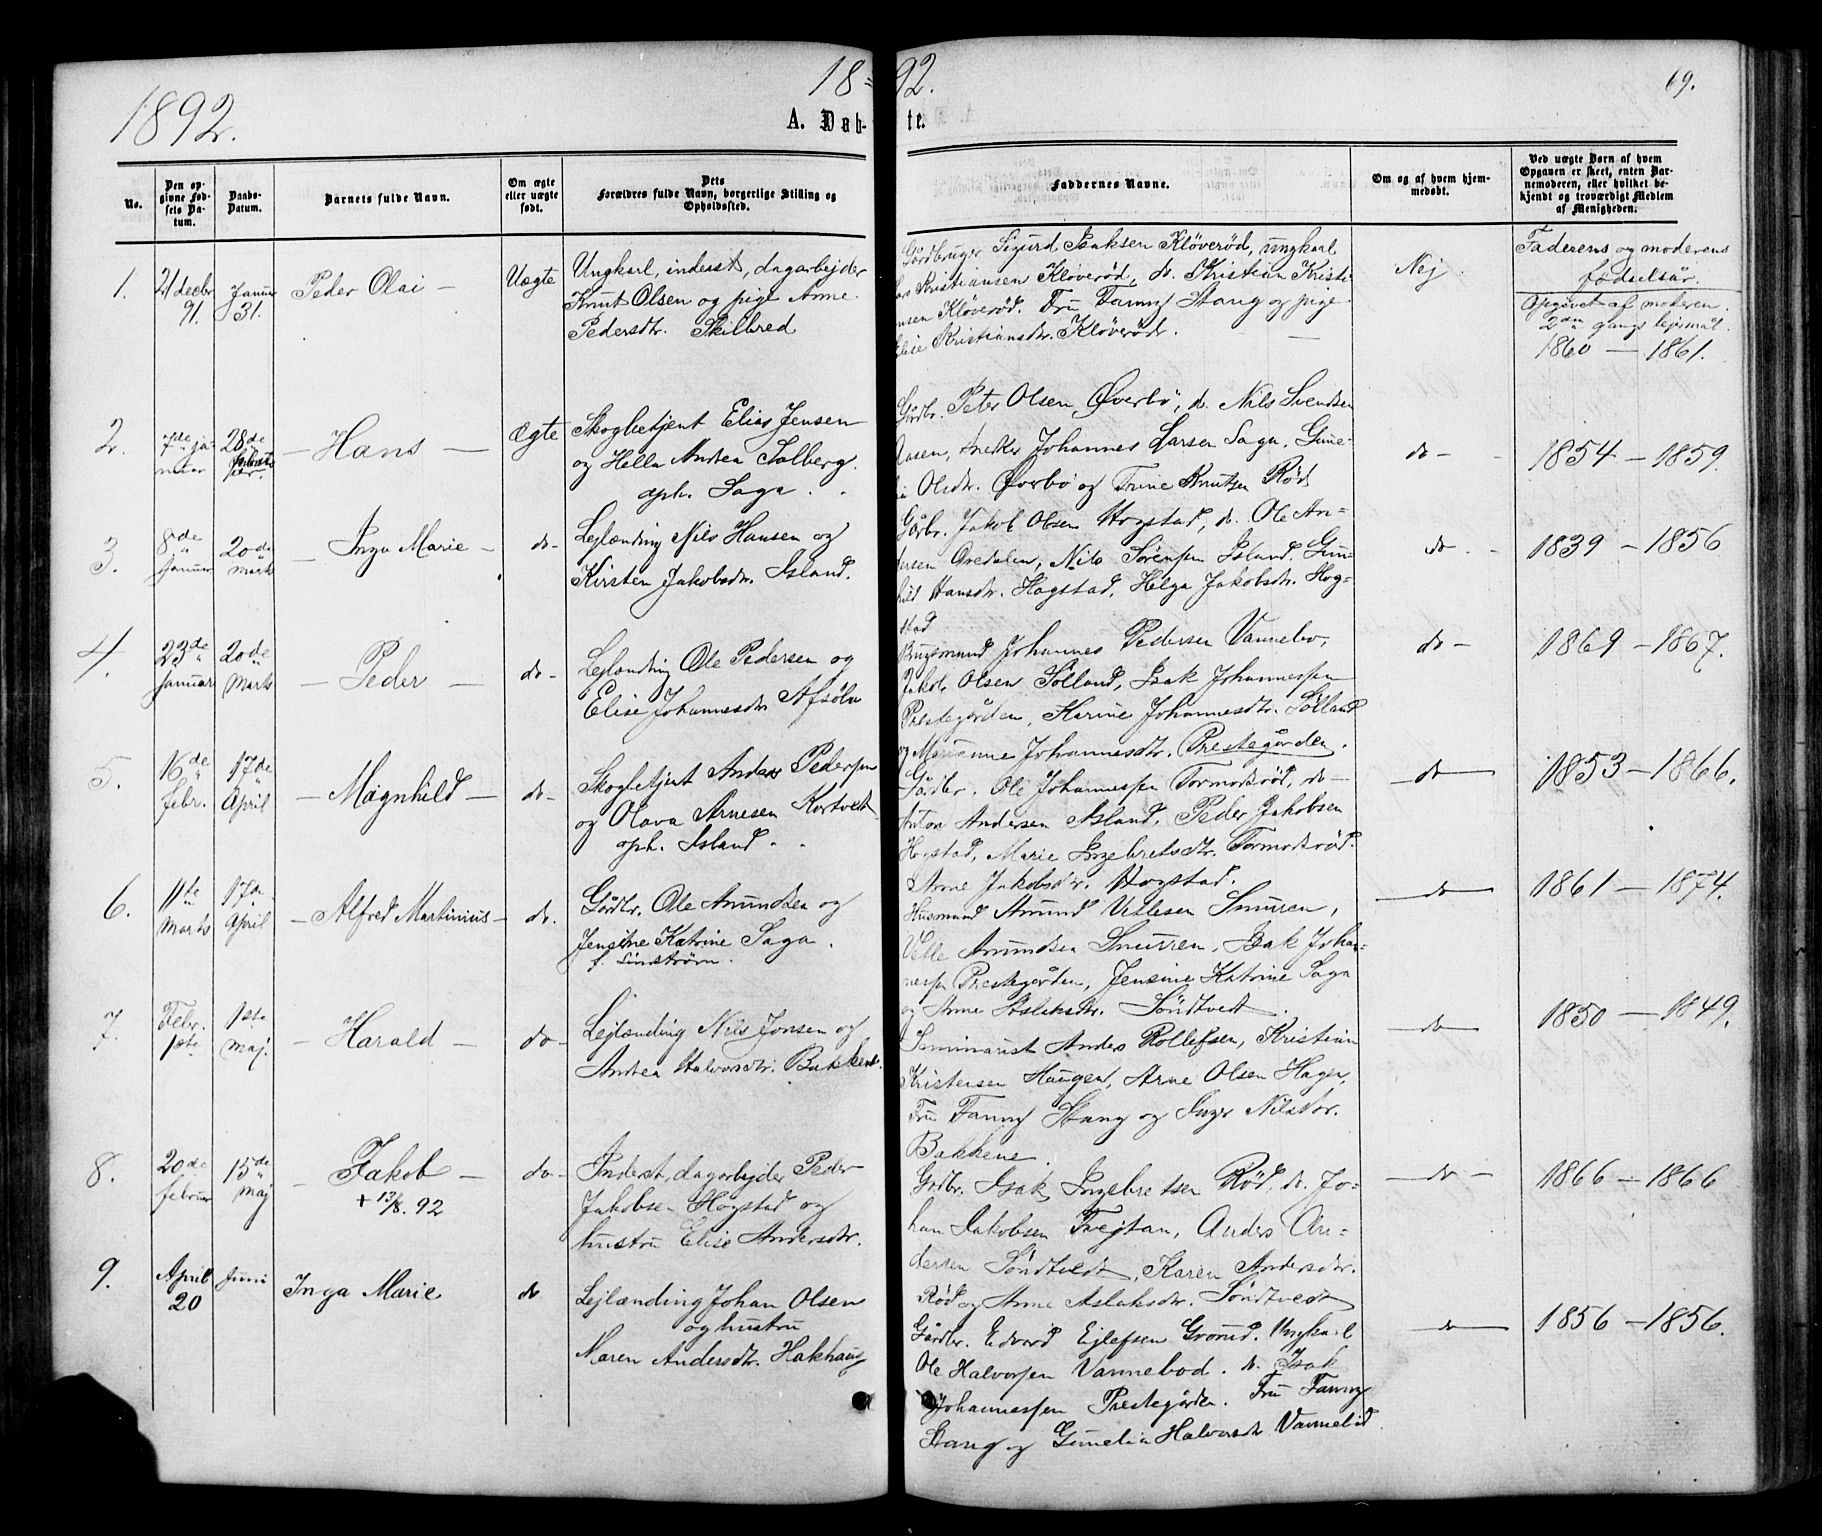 1892.
18
92.
69.
A. Døb-
te.
No.
Den op-
givne Fød-
sels Da-
tum.
Daabs-
Datum.
Barnets fulde Navn.
Om ægte
eller uægte
født.
Dets
Forældres fulde Navn, borgerlige Stilling og
Opholdssted.
Faddernes Navne.
Om og af hvem hjem-
medøbt.
Ved uægte Børn af hvem
Opgaven er skeet, enten Bar-
nemoderen, eller hvilket be-
kjendt og troværdigt Medlem
af Menigheden.
1.
21 decbr
91.
Januar
31.
Peder Olai —
Uægte
Ungkarl, inderst, dagarbejder
Knut Olsen og pige Anne
Pedersdtr. Skilbred
Gårdbruger Sigurd Isaksen Kløverød, ungkarl
Kristiansen Kløverød, do. Kristian Kristi-
ansen Kløverød. Fru Fanny Stang og pige
Elise Kristiansdtr. Kløverød.
Nej
Faderens og moderens
fødselsår.
Opgivet af moderen.
2den gangs lejermål.
1860 — 1861.
2.
7de ja-
nuar
28de
februar
— Hans —
Ægte
Skogbetjent Elias Jensen
og Hella Andrea Solberg.
oph. Saga.
Gårdbr. Peter Olsen Øverbø, do. Nils Svendsen
Aasen, Snekker Johannes Larsen Saga. Gune-
lia Olsdtr. Øverbø og Trine Knutsen Rød
do —
1854 — 1859.
3.
8de
januar
20de
marts
— Inga Marie —
do —
Lejlænding Nils Hansen og
Kirsten Jakobsdtr. Island.
Gårdbr. Jakob Olsen Hogstad, do. Ole An-
dersen Øredalen, Nils Sørensen Island. Gun-
hild Hansdtr. Hogstad, Helga Jakobsdtr. Hog-
stad
do. —
1839 — 1856
4.
23de
januar
20de
Marts
— Peder —
do —
Lejlænding Ole Pedersen og
Elise Johannesdtr.
Brugsmand Johannes Pedersen Vannebo,
Jakob Olsen Sølland, Isak Johannessen
Prestegården, Karine Johannesdtr. Sølland
og Marianne Johannesdtr. Prestegården.
do —
1869 — 1867.
5.
16de
febr.
17de
April
— Magnhild —
do —
Skogbetjent Anders Pedersen
og Olava Arnesen Kortvedt
oph. Island.
Gårdbr. Ole Johannessen Tormodsrød, do —
Anton Andersen Island, Peder Jakobsen
Hogstad, Marie Ingebretsdtr. Tormodsrød.
Anne Jakobsdtr. Hogstad.
— do —
1853 — 1866.
6.
11te
Marts
17de
April
— Alfred Martinius —
do.
Gårdbr. Ole Amundsen og
Jensine Katrine Saga.
f. Lindstrøm.
Husmand Amund Vetlesen Snurren,
Vetle Amundsen Snurren, Isak Johan-
nessen Prestegården, Jensine Katrine Saga
og Anne Aslaksdtr. Søndtvedt.
— do —
1861 — 1874.
7.
Febr.
1ste
1ste
maj.
— Harald —
do —
Lejlænding Nils Jonsen og
Andrea Halvorsdtr. Bakkene.
Seminarist Anders Rollefsen, Kristian
Kristensen Haugen, Arne Olsen Hagen,
Fru Fanny Stang og Inger Nilsdtr.
Bakkene.
— do —
1850 — 1849.
8.
20de
februar
15de
maj
— Jakob —
+ 13/8. 92
do —
Inderst, dagarbejder Peder
Jakobsen Hogstad og
hustru Elise Andersdtr.
Gårdbr. Isak Ingebretsen Rød, do. Jo-
han Jakobsen Tvejtan, Anders An-
dersen Søndtvedt, Karen Andersdtr.
Rød og Anne Aslaksdtr. Søndtvedt
— do —
1866 — 1866
9.
April
20
Juni
Inga Marie
do
Lejlænding Johan Olsen
og hustru
Maren Andersdtr. Hakhaug
Gårdbr. Edvard Ejlefsen Grorud. Ungkarl
Ole Halvorsen Vannebod. do. Isak
Johannessen Prestegården. Fru Fanny
Stang og Gunelia Halvorsdtr Vannebod.
— do —
1856 — 1856.